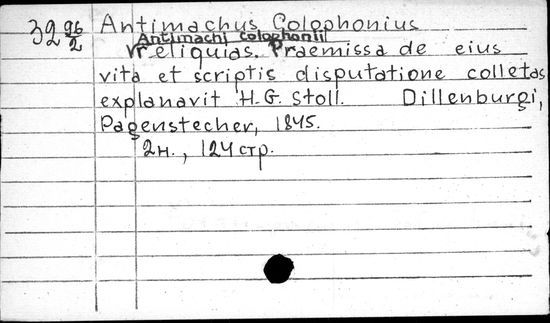 32 96/2 Antimachus Colophonius
Antimachi Colophonii
reliquias. Praemissa de eius
vita et scriptis disputatione colletas
explanavit H. G. Stoll. Dillenburgi,
Pagenstecher, 1845.
2н., 124 стр.